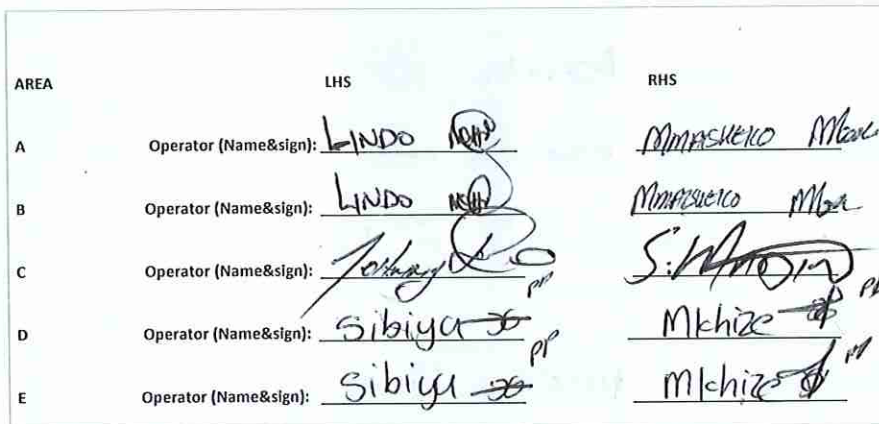 AREA LHS RHS
A Operator (Name&sign): LINDO MMASHEKO
B Operator (Name&sign): LINDO MMASHEKO
C Operator (Name&sign): Johnny
PP PP
D Operator (Name&sign): Sibiya Mkhize
PP PP
E Operator (Name&sign): Sibiya Mkhize